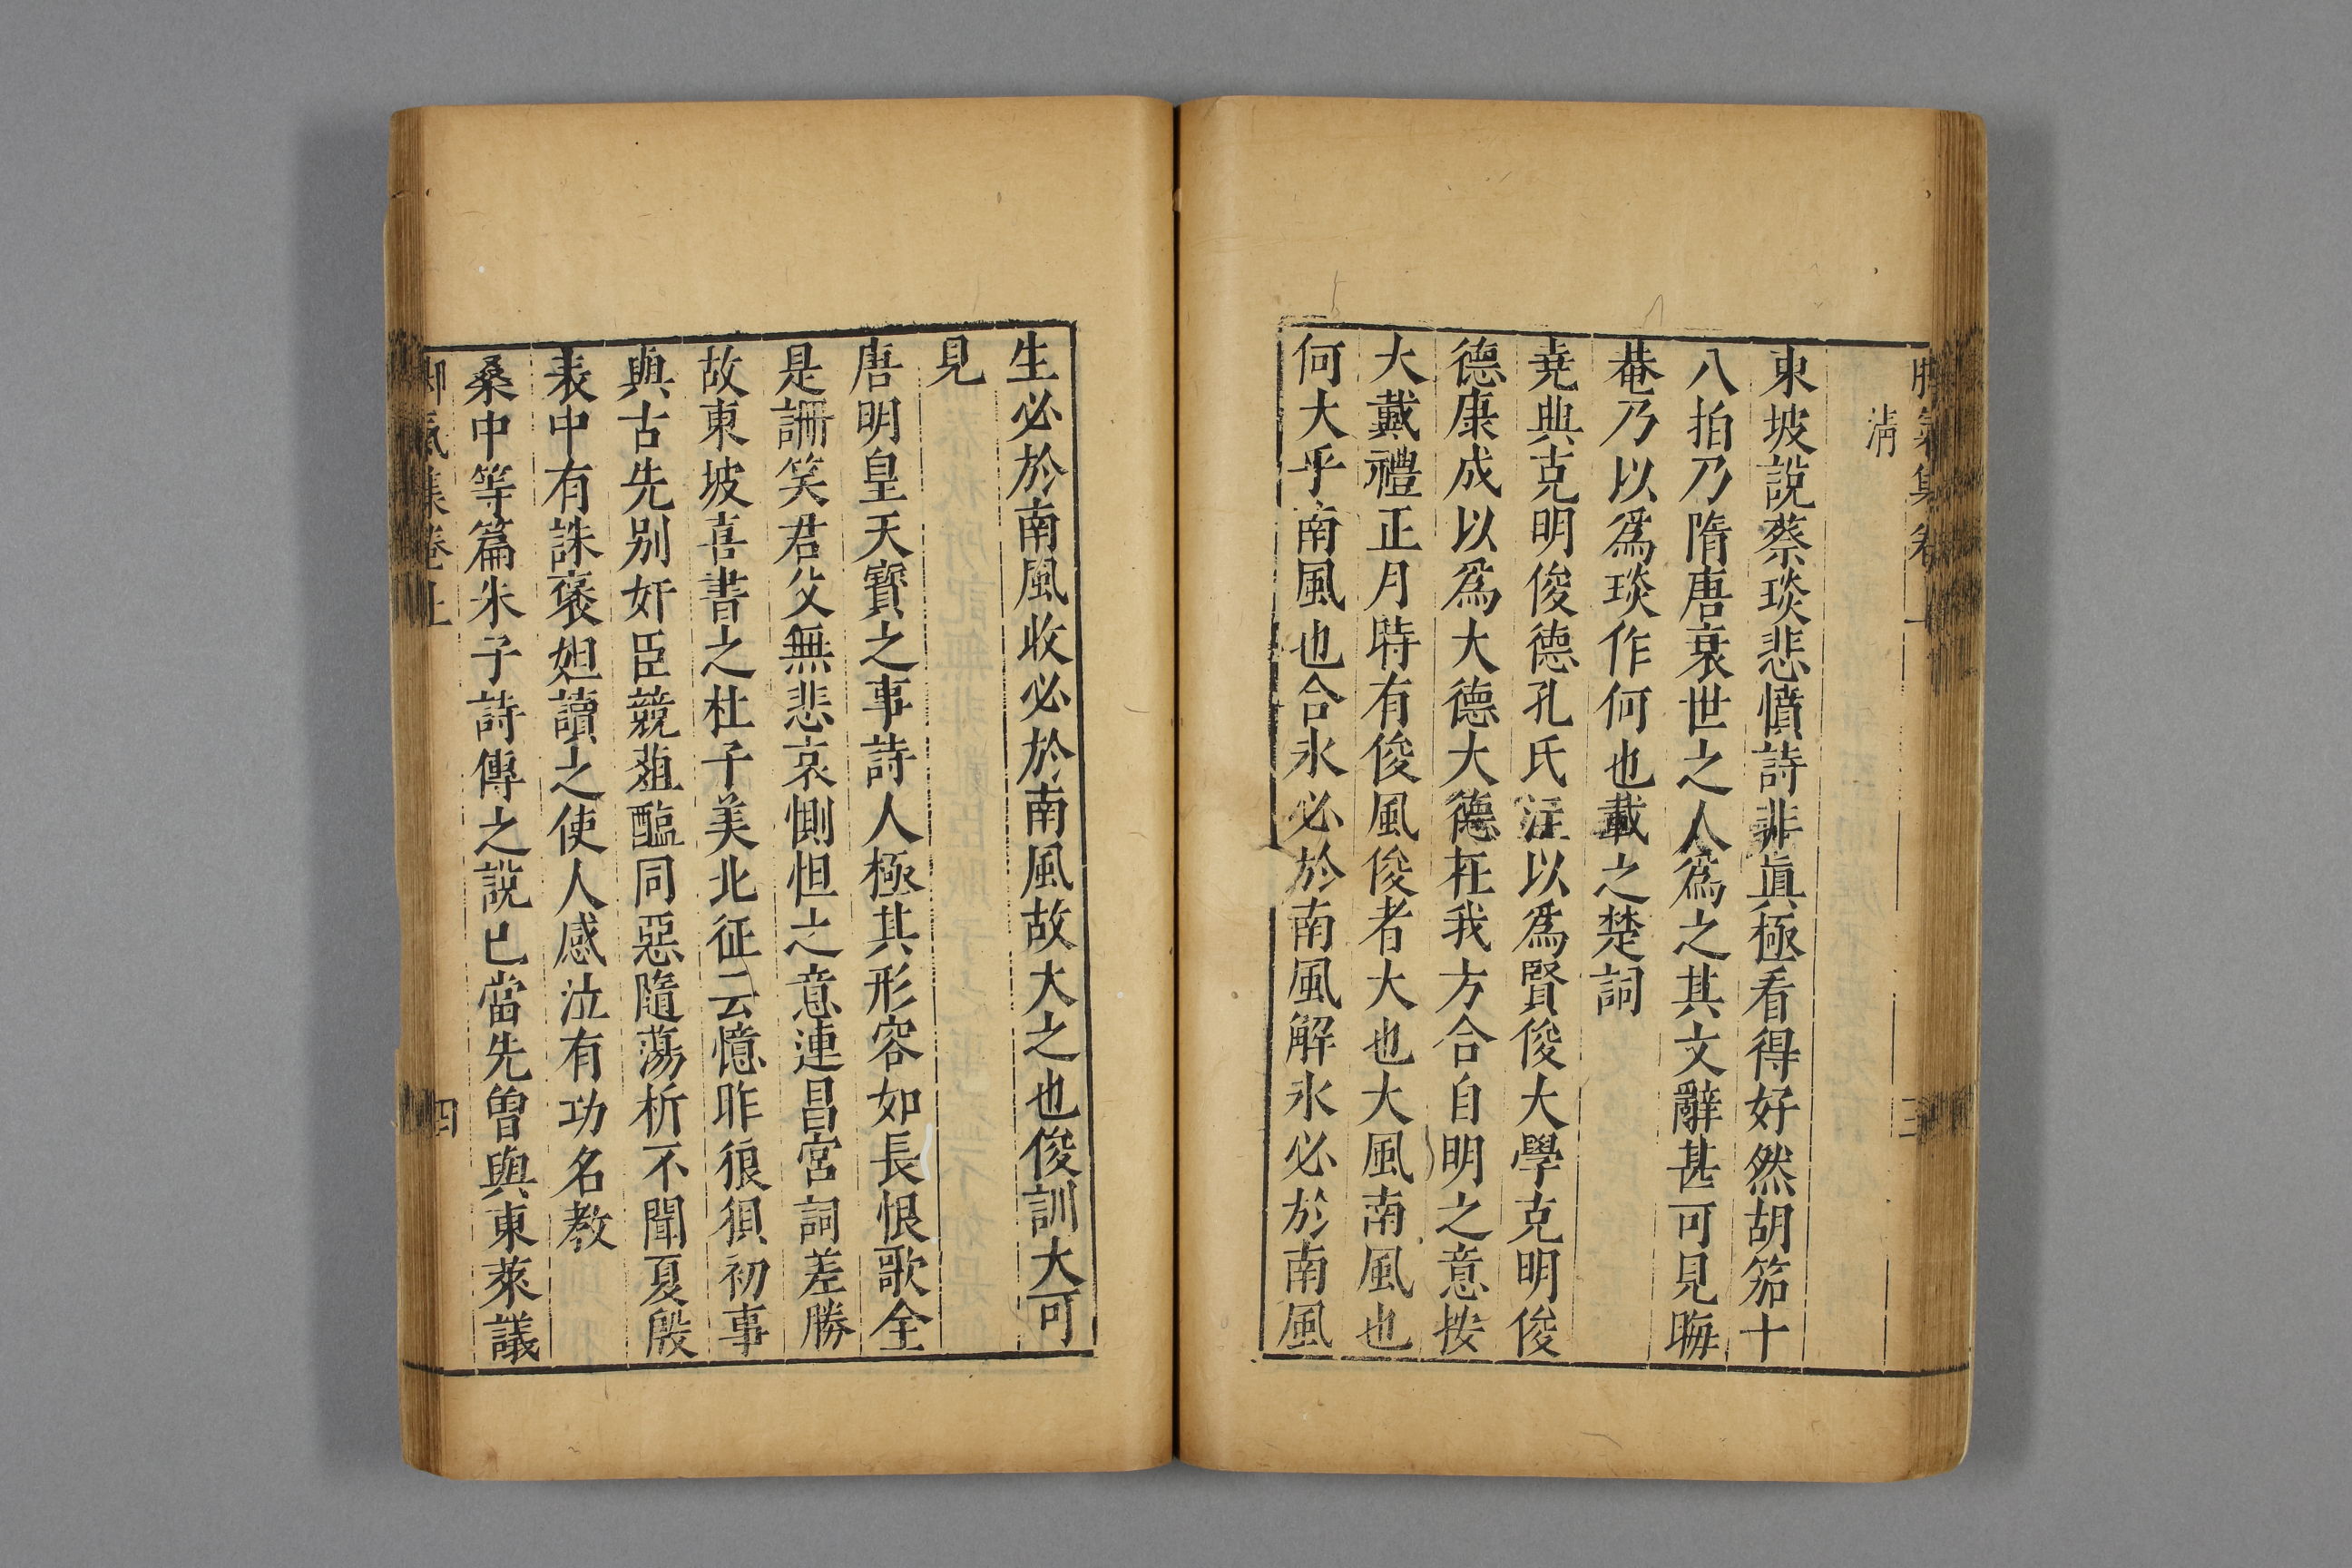 脚氣集卷上
三
淸
東坡說蔡琰悲憤詩非眞極看得好然胡笳十
八拍乃隋唐衰世之人爲之其文辭甚可見晦
菴乃以爲琰作何也載之楚詞
堯典克明俊德孔氏注以爲賢俊大學克明俊
德康成以爲大德大德在我方合自明之意按
大戴禮正月時有俊風俊者大也大風南風也
何大乎南風也合氷必於南風解氷必於南風
生必於南風收必於南風故大之也俊訓大可
見
唐明皇天寶之事詩人極其形容如長恨歌全
是譏笑君父無悲哀惻怛之意連昌宮詞差勝
故東坡喜書之杜子美北征云憶昨狼狽初事
與古先别奸臣競葅醢同惡隨蕩析不聞夏殷
衰中有誅褒妲讀之使人感泣有功名教
桑中等篇朱子詩傳之說已當先曾與東萊議
脚氣集卷上
四